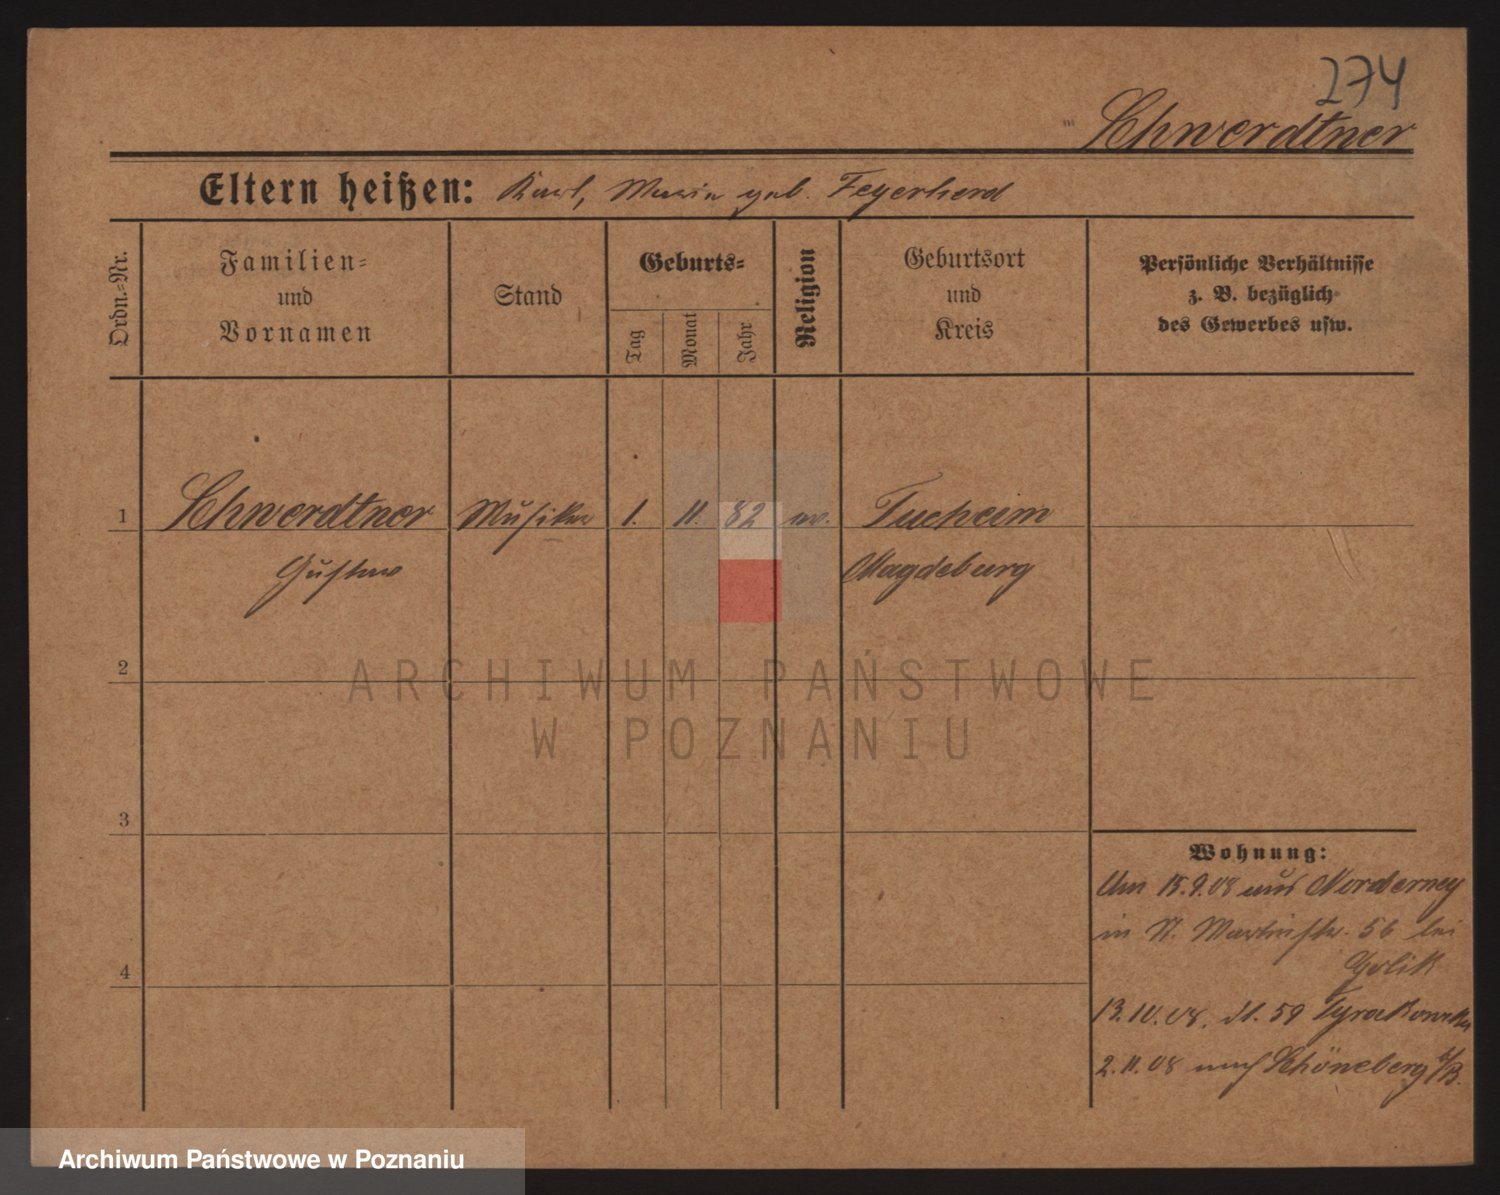 274
Schwerdtner
Eltern heißen: Karl, Marie geb. Feyerherd
Ordn.-Nr.
Familien-
und
Vornamen
Stand
Geburts-
Tag
Monat
Jahr
Religion
Geburtsort
und
Kreis
Persönliche Verhältnisse
z. B. bezüglich
des Gewerbes usw.
1 Schwerdtner Musiker 1. 11. 82 ev. Tucheim
Gustav Magdeburg
2
ARCHIWUM PAŃSTWOWE
W POZNANIU
3
Wohnung:
Am 15.9.08 aus Norderney
in St. Martinstr. 56 bei
4
13.10.08. dt. 59
2.11.08 nach Schöneberg b/B.
Archiwum Państwowe w Poznaniu